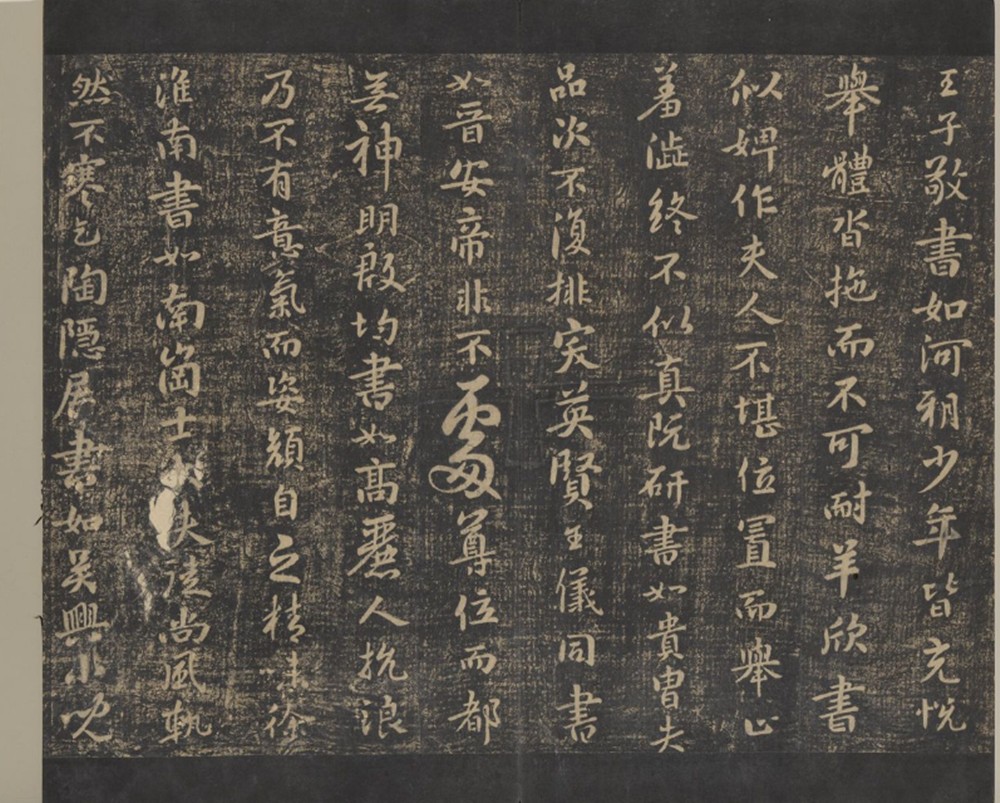 王子敬書如河朔少年皆充悅
舉體沓拖而不可耐羊欣書
似婢作夫人不堪位置而舉止
羞澁終不似真阮研書如貴胄失
品次不復排突英賢王儀同書
如晉安帝非不處尊位而都
無神明殷均書如高麗人抗浪
乃不有意氣而姿顏自乏精味徐
淮南書如南崗士大夫徒尚風軌
然不寒乞陶隱居書如吳興小兒